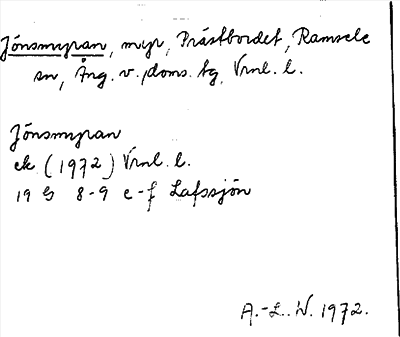 Jönsmyran, myr, Prästbordet, Ramsele
sn, Ång. v. doms. tg, Vrnl. l.
Jönsmyran
ek (1972) Vrnl. l.
19 G 8-9 e-f Lafssjön
A.-L. W. 1972.